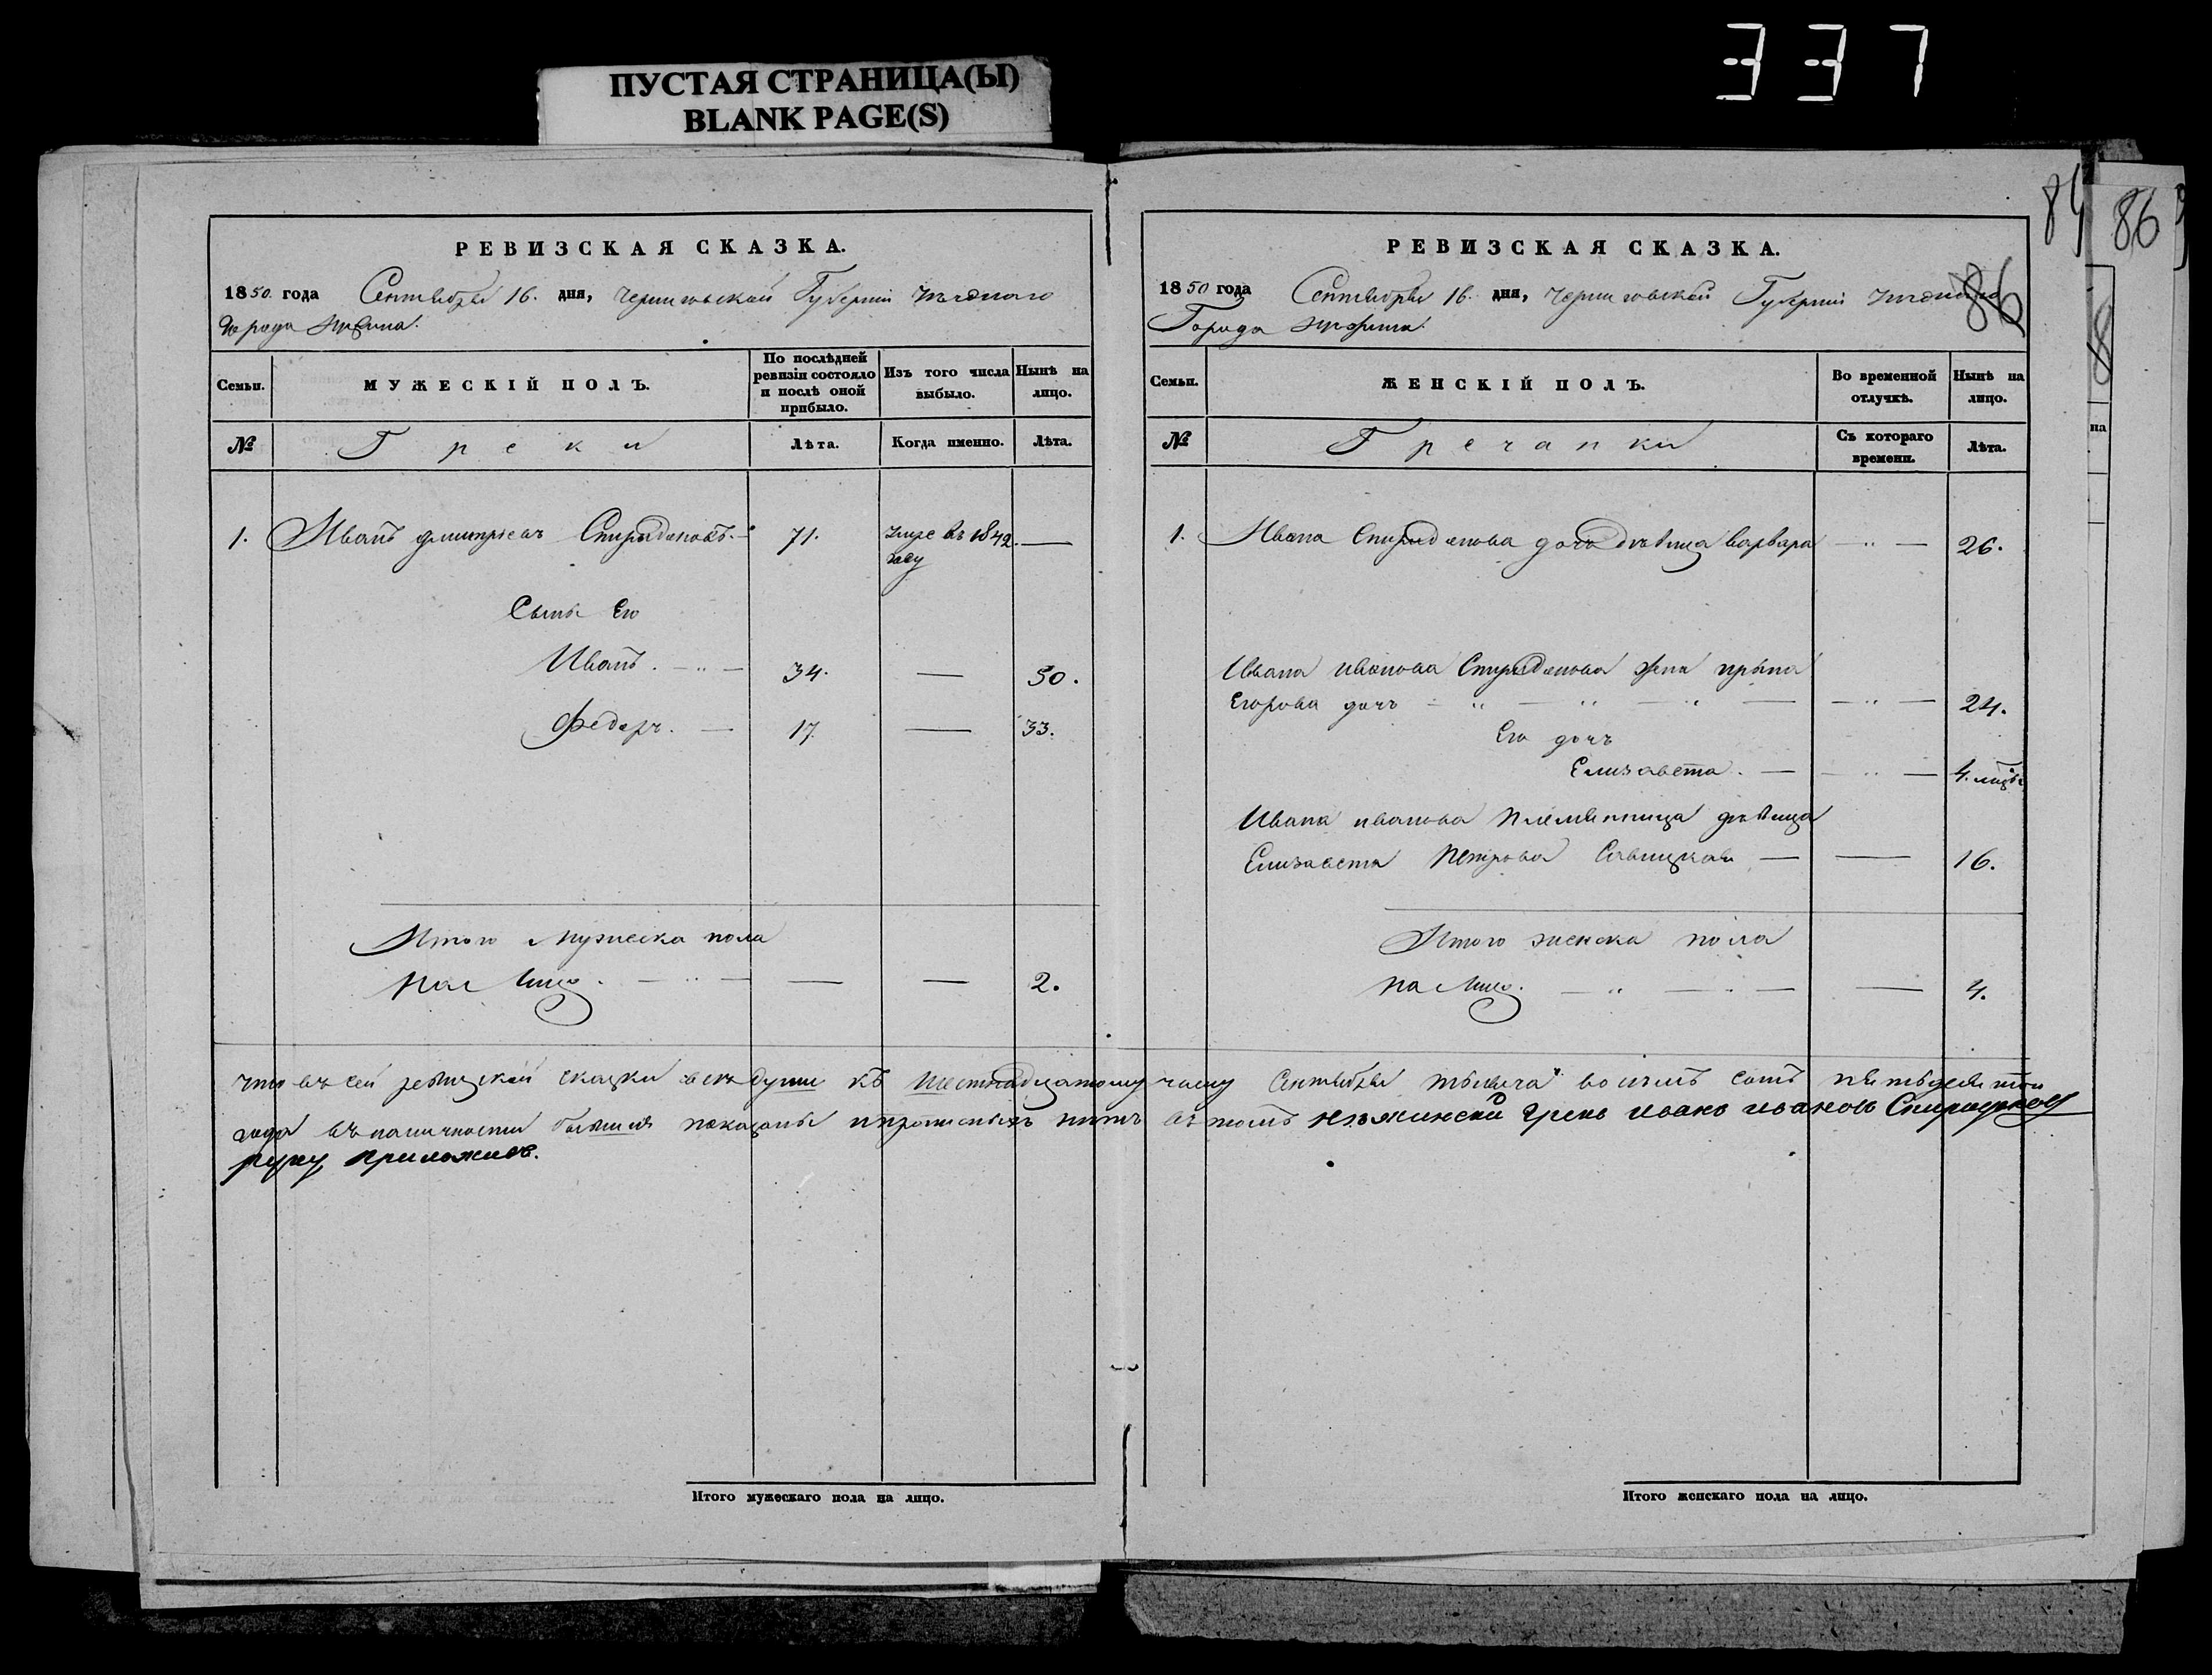 337
ПУСТАЯ СТРАНИЦА(Ы)
BLANK PAGE(S)
84
86
86
РЕВИЗСКАЯ СКАЗКА.
1850 года Сентября 16. дня, Черниговской Губерніи уѣзднаго
Города Нѣжина.
Семьи.
МУЖЕСКІЙ ПОЛЪ.
По послѣдней ревизіи состояло и послѣ оной прибыло.
Изъ того числа выбыло.
Нынѣ на лицо.
№
Греки
Лѣта.
Когда именно.
Лѣта.
1. Иванъ дмитріевъ Спиридоновъ. 71. Умре въ 1842. —
году
Сыны Его
Иванъ. — 34. — 50.
Федоръ. — 17. — 33.
Итого Мужеска пола
На Лицо. — — — 2.
Итого мужескаго пола на лицо.
РЕВИЗСКАЯ СКАЗКА.
1850 года Сентября 16. дня, Черниговской Губерніи уѣзднаго
Города Нѣжина.
Семьи.
ЖЕНСКІЙ ПОЛЪ.
Во временной отлучкѣ.
Нынѣ на лицо.
№
Гречанки
Съ котораго времени.
Лѣта.
1. Ивана Спиридонова дочь дѣвица Варвара — 26.
Ивана иванова Спиридонова жена ирина
Егорова дочь — — 24.
Его дочь
Елизавета. — — 4. мѣся
Ивана иванова племянница дѣвица
Елизавета Петрова Савицкая — — 16.
Итого женска пола
на Лицо. — — 4.
Итого женскаго пола на лицо.
на
что въ сей ревизской сказки всѣ души къ шестнадцатому числу Сентября тысяча восемь сотъ пятьдесятаго
года въ наличности бывшія показаны и прописныхъ нѣтъ въ томъ нѣжинский грекъ иванъ ивановъ Спиридоновъ
руку приложилъ.